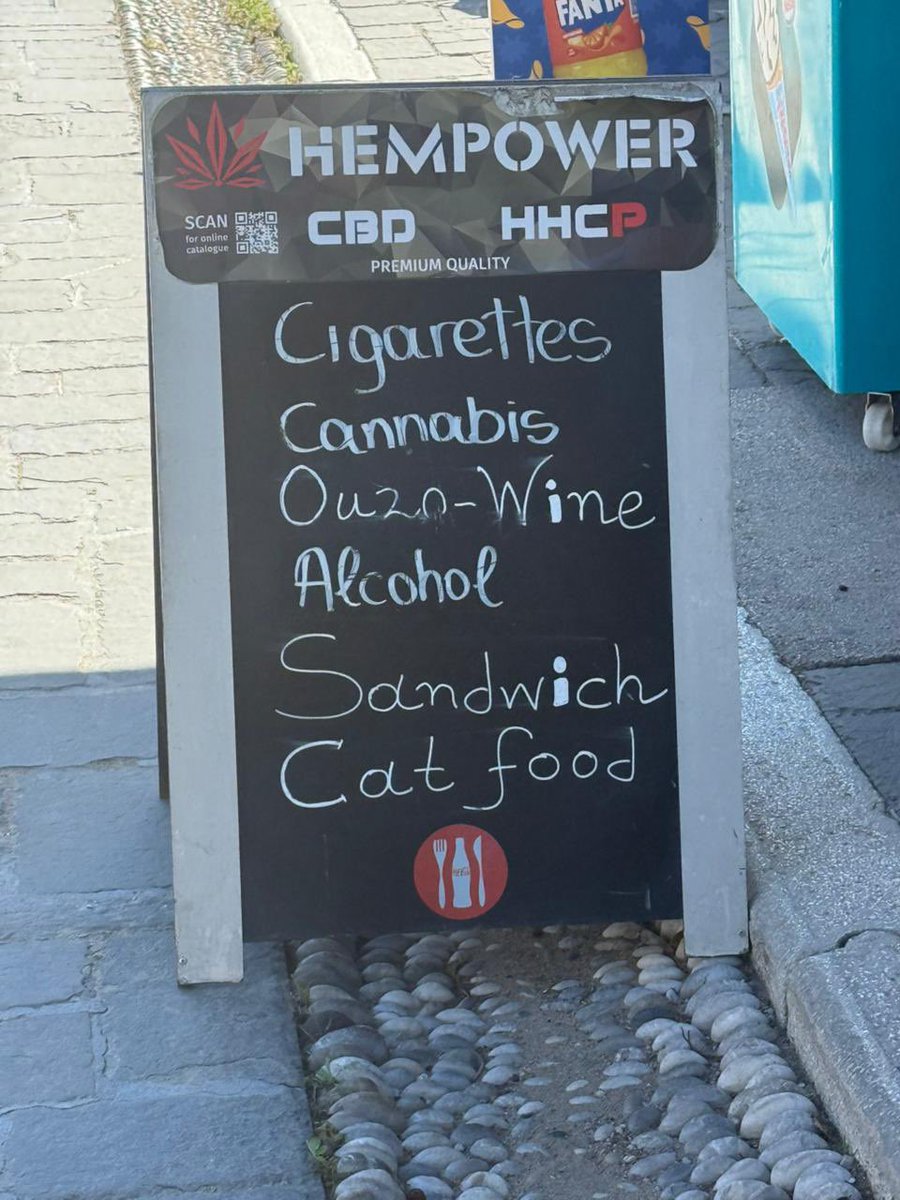 FANTA
HEMPOWER
SCAN
for online
catalogue
CBD
HHCP
PREMIUM QUALITY
Cigarettes
Cannabis
Ouzo-Wine
Alcohol
Sandwich
Cat food